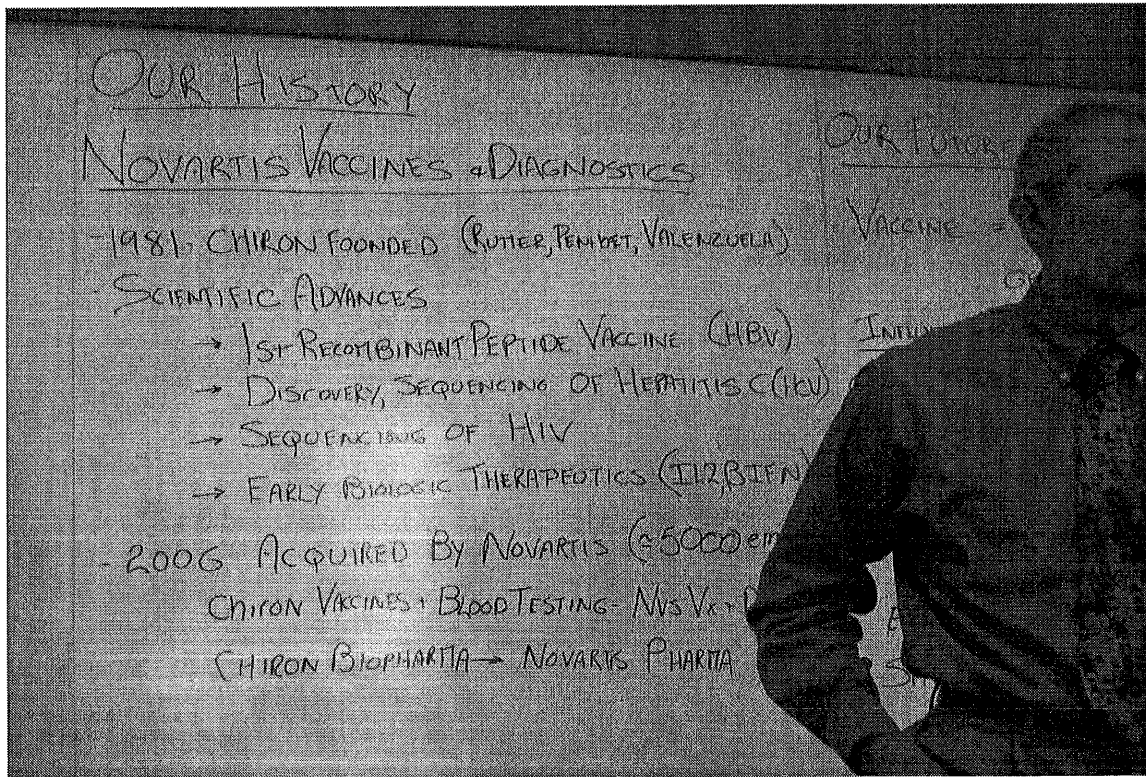 OUR HISTORY
NOVARTIS VACCINES & DIAGNOSTICS
- 1981 - CHIRON FOUNDED (RUTTER, PENHOET, VALENZUELA)
- SCIENTIFIC ADVANCES
→ 1ST RECOMBINANT PEPTIDE VACCINE (HBV)
→ DISCOVERY, SEQUENCING OF HEPATITIS C (HCV)
→ SEQUENCING OF HIV
→ EARLY BIOLOGIC THERAPEUTICS (IL2, BIFN)
- 2006 ACQUIRED BY NOVARTIS (≈5000
CHIRON VACCINES + BLOOD TESTING - NVS VX +
CHIRON BIOPHARMA → NOVARTIS PHARMA
OUR FUTURE
VACCINE